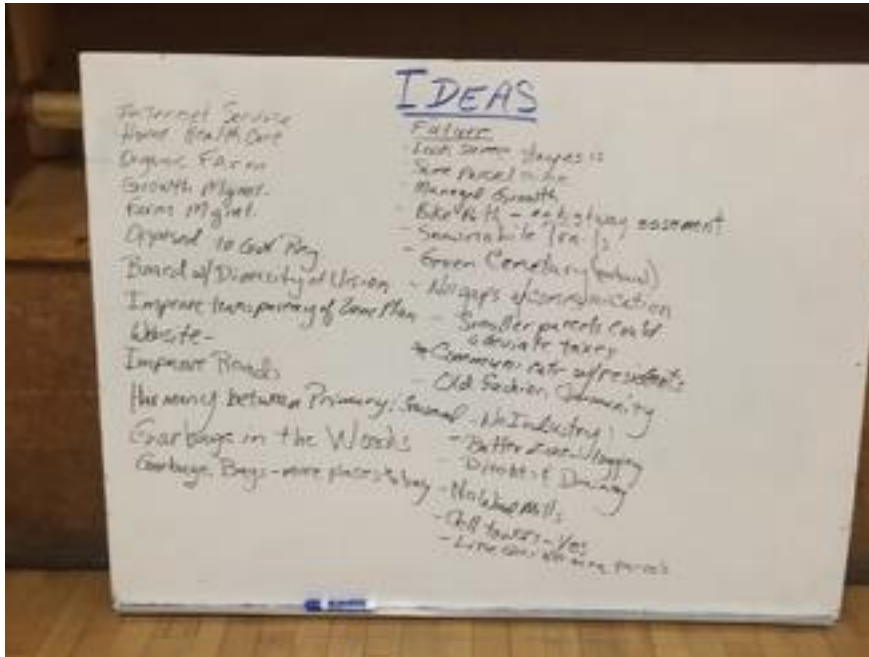 IDEAS
Internet Service
Home Health Care
Organic Farm
Growth Mgmet.
Farm Mgmet.
Opposed to Gov Reg
Board w/ Diversity of Vision
Improve transparency of Zone Plan
Website -
Improve Roads
Harmony between Primary: Seasonal
Garbage in the Woods
Garbage Bags - more places to buy
Future
- Look same stays
Same parcel
- Managed Growth
- Bike Path - highway easement
- Snowmobile Trails
- Green Cemetary (natural)
- No gaps w/communication
- Smaller parcels could
taxes
Communicate w/residents
- Old Fashion Community
- No Industry
- logging
- 
- No Wind Mills
- Cell towers - Yes
- parcels